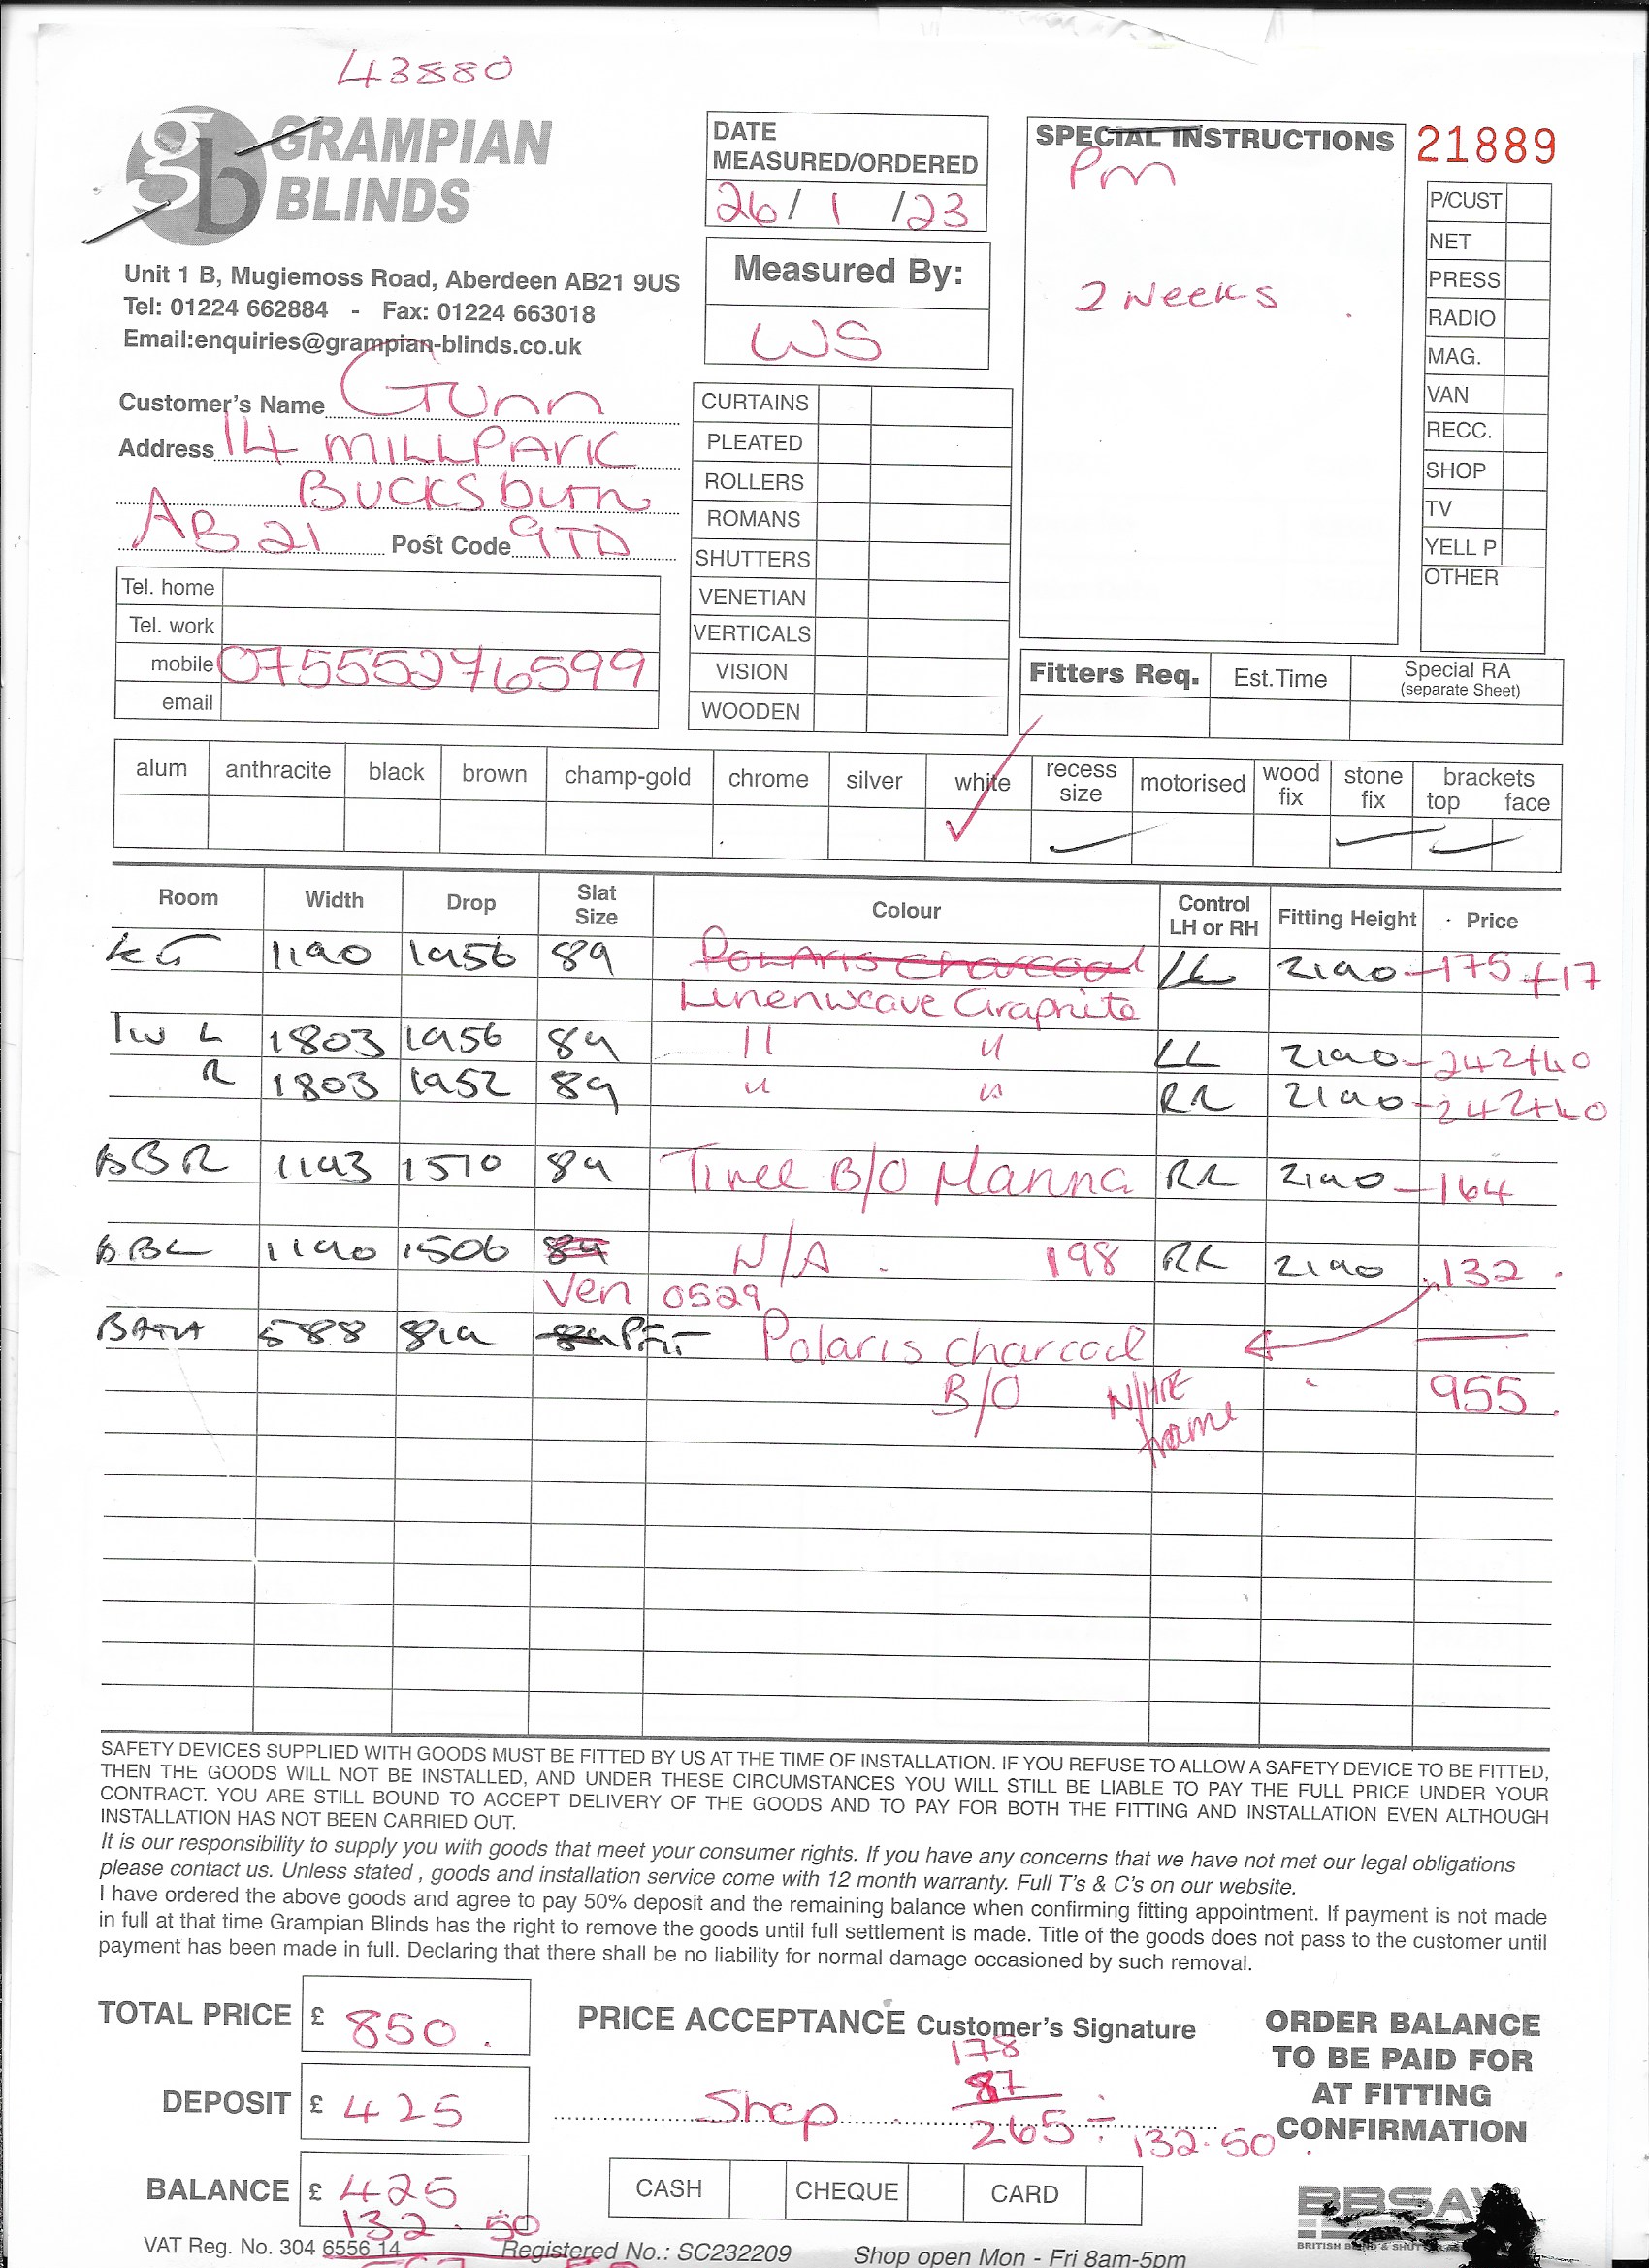 43880
GRAMPIAN
BLINDS
Unit 1 B, Mugiemoss Road, Aberdeen AB21 9US
Tel: 01224 662884 - Fax: 01224 663018
Email:enquiries@grampian-blinds.co.uk
DATE
MEASURED/ORDERED
26/ 1 /23
Measured By:
WS
SPECIAL INSTRUCTIONS
Pm
2 Weeks
21889
P/CUST
NET
PRESS
RADIO
MAG.
VAN
RECC.
SHOP
TV
YELL P
OTHER
Customer's Name Gunn
Address 14 MILLPARK
Bucksburn
AB 21 Post Code 9TD
Tel. home
Tel. work
mobile 07555276599
email
CURTAINS
PLEATED
ROLLERS
ROMANS
SHUTTERS
VENETIAN
VERTICALS
VISION
WOODEN
Fitters Req. Est.Time Special RA
(separate Sheet)
alum anthracite black brown champ-gold chrome silver white recess size motorised wood fix stone fix brackets top face
Room Width Drop Slat Size Colour Control LH or RH Fitting Height Price
1190 1956 89 Polaris Charcoal LL 2190 - 175 +17
Linenweave Graphite
L 1803 1956 89 " " LL 2190 - 242+40
R 1803 1952 89 " " RR 2190 - 242+40
BBR 1193 1510 89 Tiree B/O Manna RR 2190 - 164
BBL 1190 1506 89 N/A . 198 RR 2190 132 .
Ven 0529
BATH 588 819 PFit Polaris charcoal
B/O White frame 955
SAFETY DEVICES SUPPLIED WITH GOODS MUST BE FITTED BY US AT THE TIME OF INSTALLATION. IF YOU REFUSE TO ALLOW A SAFETY DEVICE TO BE FITTED,
THEN THE GOODS WILL NOT BE INSTALLED, AND UNDER THESE CIRCUMSTANCES YOU WILL STILL BE LIABLE TO PAY THE FULL PRICE UNDER YOUR
CONTRACT. YOU ARE STILL BOUND TO ACCEPT DELIVERY OF THE GOODS AND TO PAY FOR BOTH THE FITTING AND INSTALLATION EVEN ALTHOUGH
INSTALLATION HAS NOT BEEN CARRIED OUT.
It is our responsibility to supply you with goods that meet your consumer rights. If you have any concerns that we have not met our legal obligations
please contact us. Unless stated , goods and installation service come with 12 month warranty. Full T's & C's on our website.
I have ordered the above goods and agree to pay 50% deposit and the remaining balance when confirming fitting appointment. If payment is not made
in full at that time Grampian Blinds has the right to remove the goods until full settlement is made. Title of the goods does not pass to the customer until
payment has been made in full. Declaring that there shall be no liability for normal damage occasioned by such removal.
TOTAL PRICE £ 850 .
DEPOSIT £ 425
BALANCE £ 425
132.50
PRICE ACCEPTANCE Customer's Signature
178
87
Shop 265 ÷ 132.50
ORDER BALANCE
TO BE PAID FOR
AT FITTING
CONFIRMATION
CASH CHEQUE CARD
BBSA
VAT Reg. No. 304 6556 14 Registered No.: SC232209 Shop open Mon - Fri 8am-5pm